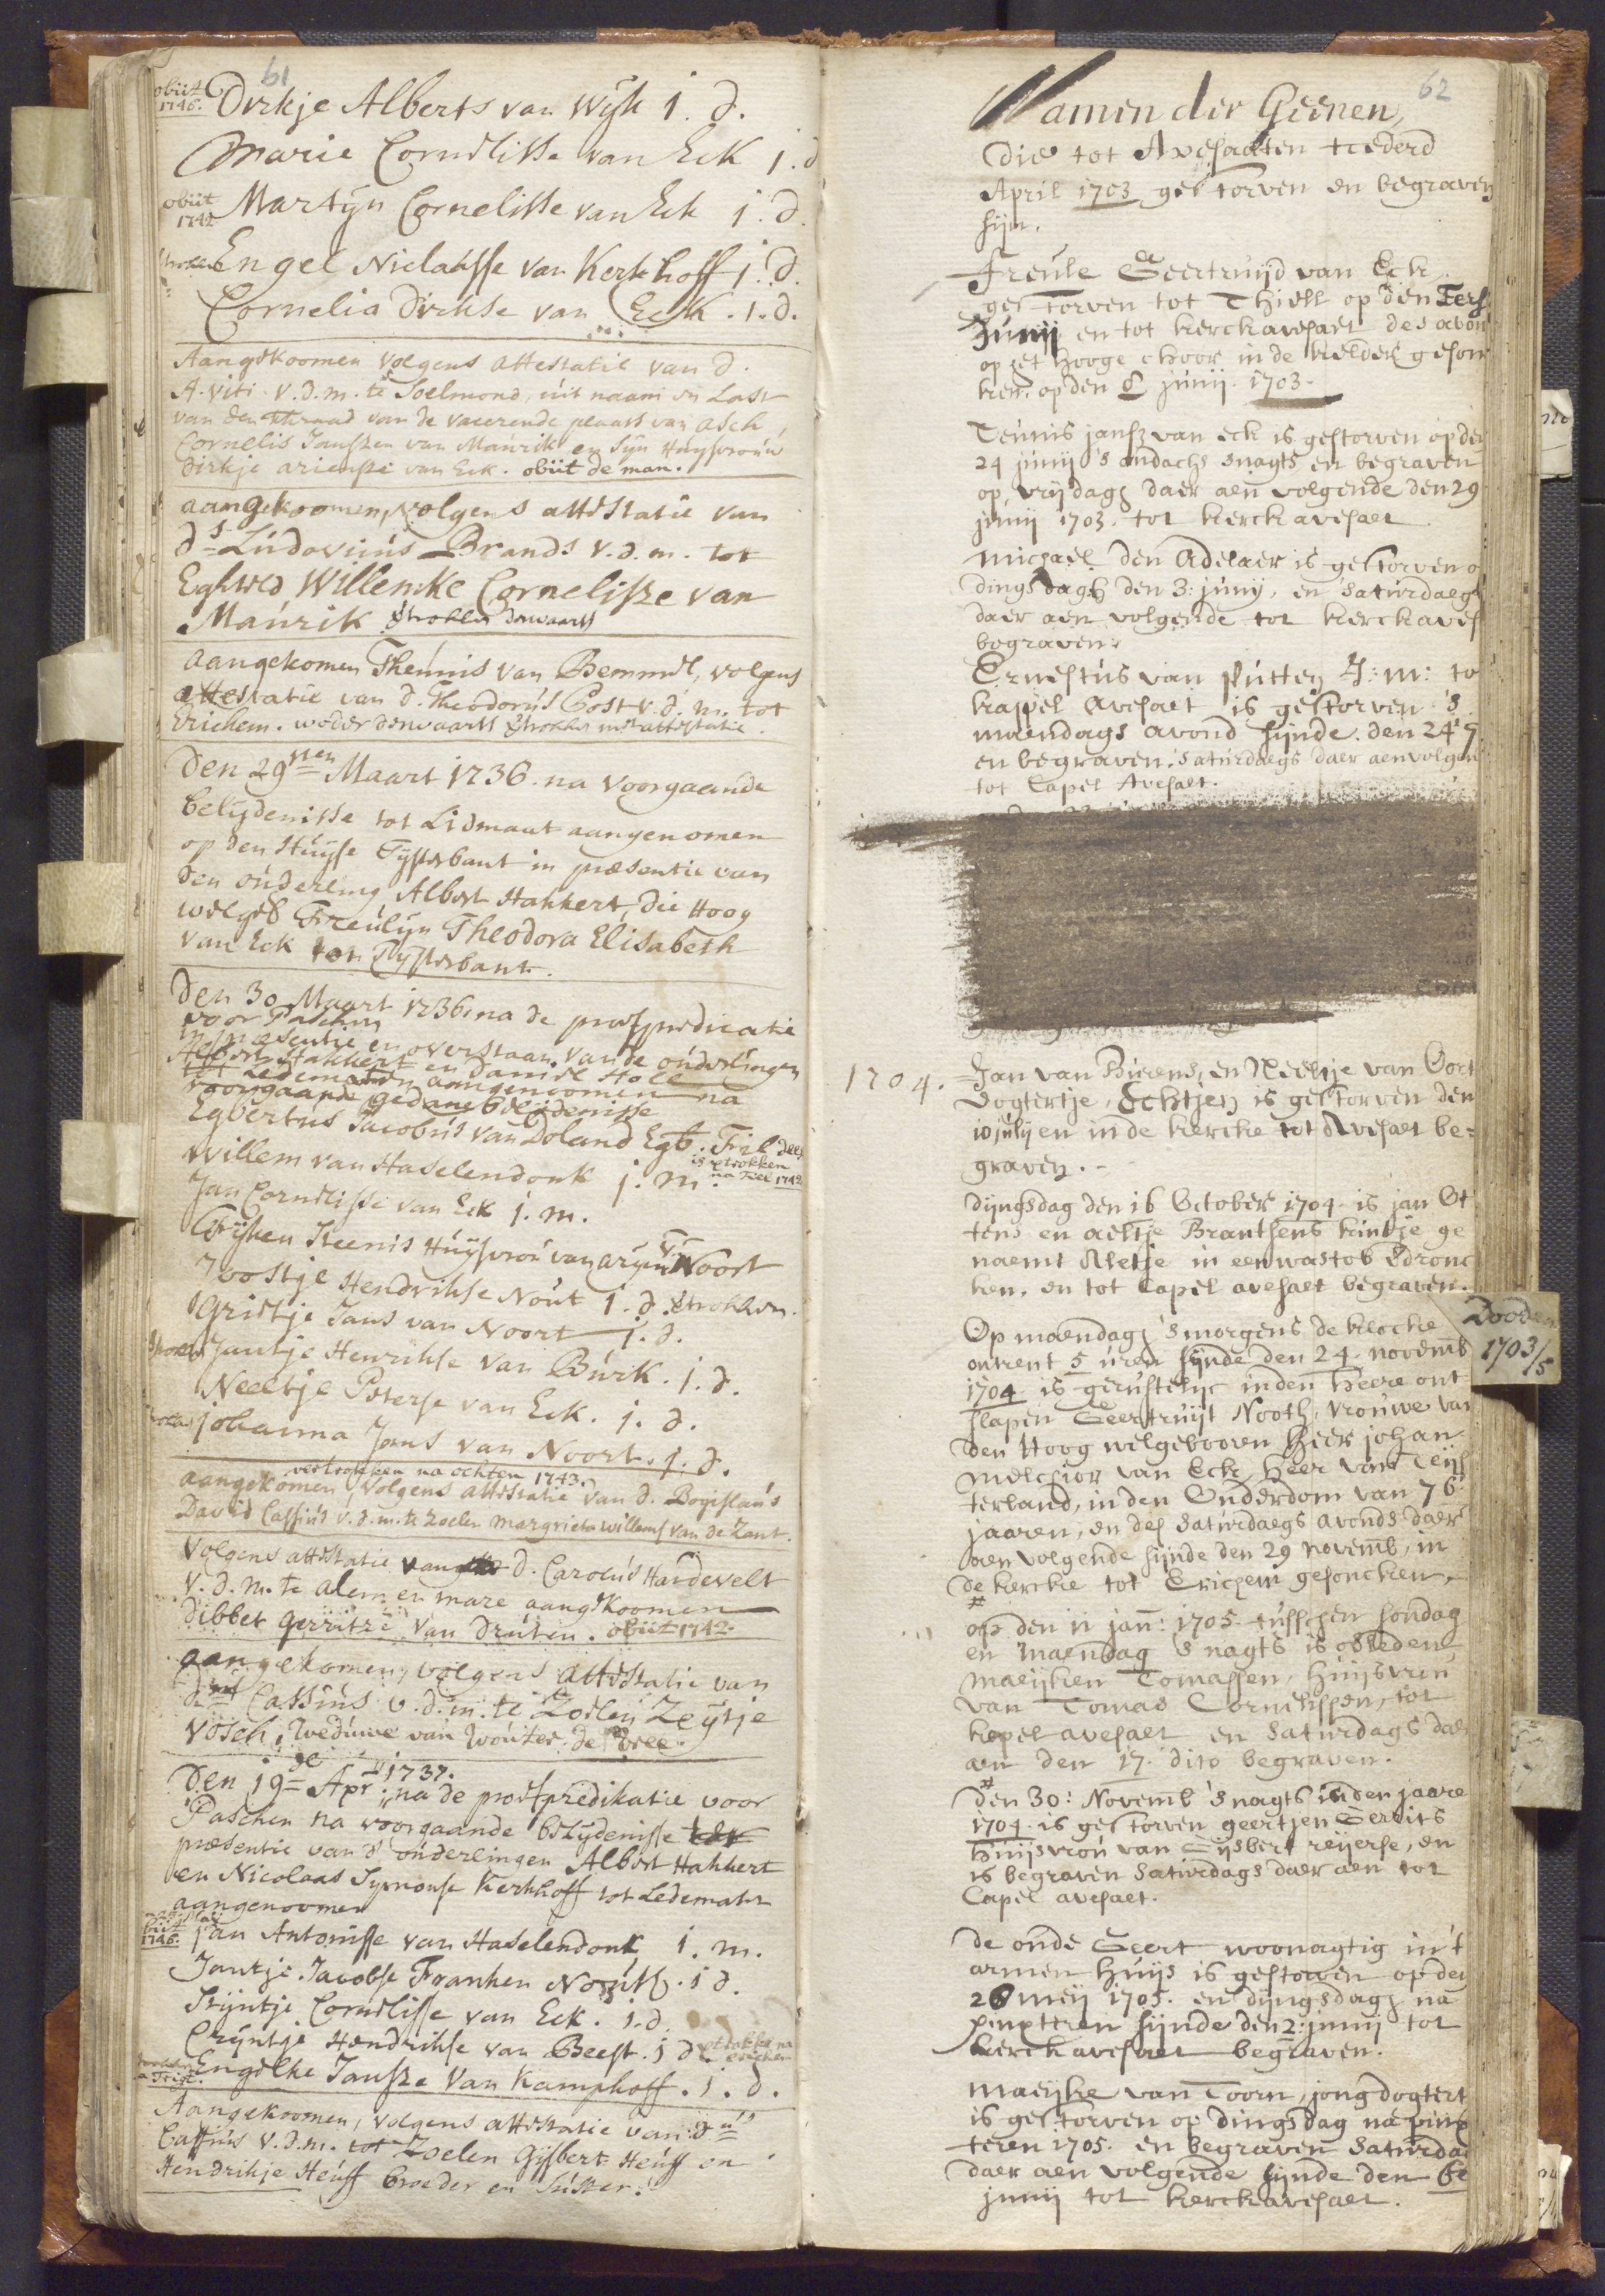 61
obiit
1746. Dirkje Alberts van Wijk j. d.
Marie Cornelisse van Eck j. d
obiit
1742 Martijn Cornelisse van Eck j. d.
Engel Niclaasse van Kerkhoff j. d.
Cornelia Dirkse van Eck. j. d.
Aangekoomen volgens attestatie van d.
A. Viti. v. d. m. te Soelmond, uit naam en Last
van den kerkraad van de vacerende plaats van Asch,
Cornelis Janssen van Maurik en sijn Huysvrouw
Dirkje ariensse van Eck. obiit de man.
aangekoomen, volgens attestatie van
ds. Ludovicus Brands v. d. m. tot
Eghwed Willemke Cornelisse van
Maurik vertrokken derwaarts
aangekomen Theunis van Bemmel, volgens
attestatie van d. Theodorus Post v. d. m. tot
Erichem. weder derwaarts vertrokken met attestatie.
Den 29sten Maart 1736. na voorgaande
belydenisse tot Lidmaat aangenomen
op den Huyse Tysterbant in præsentie van
den ouderling Albert Hakkert, die Hoog
welgeb Freulijn Theodora Elisabeth
van Eck tot Tijsterbant.
Den 30 Maart 1736. na de proefpredicatie
voor Paschen
in præsentie en overstaan van de ouderlingen
Albert Hakkert en Daniel Holl
tot Ledematen aangenoomen na
voorgaande gedane belijdenisse
Egbertus Jacobus van Doland Egb. Fil.
is vertrokken
na Tiel 1742
Willem van Haselendonk j. m.
Jan Cornelisse van Eck j. m.
Grijtien Teenis Huysvrou van arien v. Noort
Joostje Hendrikse Nout j. d. vertrokken.
Grietje Jans van Noort j. d.
Jantje Henrikse van Burik. j. d.
Neeltje Peterse van Eck. j. d.
johanna Jans van Noort. j. d.
vertrokken na ochten 1743.
aangekomen, volgens attestatie van d. Bogislaus
David Cassius v. d. m. te Zoelen Margrieta Willemse van de Zant.
Volgens attestatie van d. Carolus Hardevelt
v. d. m. te Alem en mare aangekoomen
Dibbet gerritze van Druten. obiit 1742.
aangekomen, volgens attestatie van
Cassius v. d. m. te Zoelen Zeytje
Vosch, Weduwe van Wouter de Vree.
Den 19de Apr. 1737. na de proefpredikatie voor
Paschen na voorgaande belydenisse
præsentie van d' ouderlingen Albert Hakkert
en Nicolaas Symonse Kerkhoff tot Ledemaat
aangenoomen
obiit
1746. Jan Antonisse van Haselendonk j. m.
Jantje Jacobse Franken Nout. j d.
Stijntje Cornelisse van Eck. j. d.
Crijntje Hendrikse van Beest. j d vertrokke na
Engelke Jansze Van Kamphoff. j. d.
Aangekoomen, volgens attestatie van dnus
Cassius v. d. m. tot Zoelen Gijsbert Heuff en
Hendrikje Heuff broeder en suster.
62
Namen der Geenen,
Die tot Avesaeten tzedert
April 1703 gestorven en begraven
sijn.
Freule Geertruijd van Eck
gestorven tot Thiell op den Eerst
Junij en tot kerckavesaet des avon
op het hooge choor in de kelder geson
ken. op den junij. 1703.
Teunis jansz van eck is gestorven op den
24 junij 's ondachs snagts en begraven
op vrijdagh daer aen volgende den 29
junij 1703. tot kerckavesaet
michael den Adelaer is gestorven o
dingsdagh den 3: junij, en saturdaeg
daer aen volgende tot kerckaves
begraven.
Ernestus van Putten J: m: to
kappel avesaet is gestorven 's
maendags avond sijnde den 24 7
en begraven. saturdaegs daer aenvolgen
tot Capel Avesaet.
1704. Jan van Bierens, en Neeltje van Oort
dogtertje, Echtjen is gestorven den
10 julij en in de kercke tot Avesaet be-
graven.
Dijngsdag den 16 October 1704 is jan Ot
tens en aeltje Brantsens kindje ge
naemt Aletje in een wastob verdronc
ken, en tot Capel avesaet begraven.
Dooden
1703/5
Op maendagh 's morgens de klocke
omtrent 5 uren sijnde den 24 novemb
1704 is gerustelijc in den Heere ont
slapen Geertruijt Nooth, vrouwe van
den Hoog welgebooren Heer johan
melchior van Eck, Heer van Teijs
terland, in den Ouderdom van 76
jaaren, en des saturdaegs avonds daer
aen volgende sijnde den 29 novemb, in
de kercke tot Erichem gesoncken.
op den 11 jan: 1705 tusschen sondag
en maendag 's nagts is overleden
maeijken Tomassen, huijsvrou
van Tomas Cornelissen, tot
kapel avesaet en saturdags daer
aen den 17. dito begraven.
den 30: Novemb 's nagts in den jaare
1704 is gestorven geertjen Gerrits
huijsvrou van Gijsbert reijerse, en
is begraven saturdags daer aen tot
Capel avesaet.
de oude Geert woonagtig in 't
armen huijs is gestorven op den
26 meij 1705. en dijngsdagh na
pinxteren sijnde den 2: junij tot
kerckavesaet begraven.
Maeijke van Toorn, jong dogtert
is gestorven op dingsdag na pinx
teren 1705. en begraven saturda
daer aen volgende sijnde den 6e
junij tot kerckavesaet.